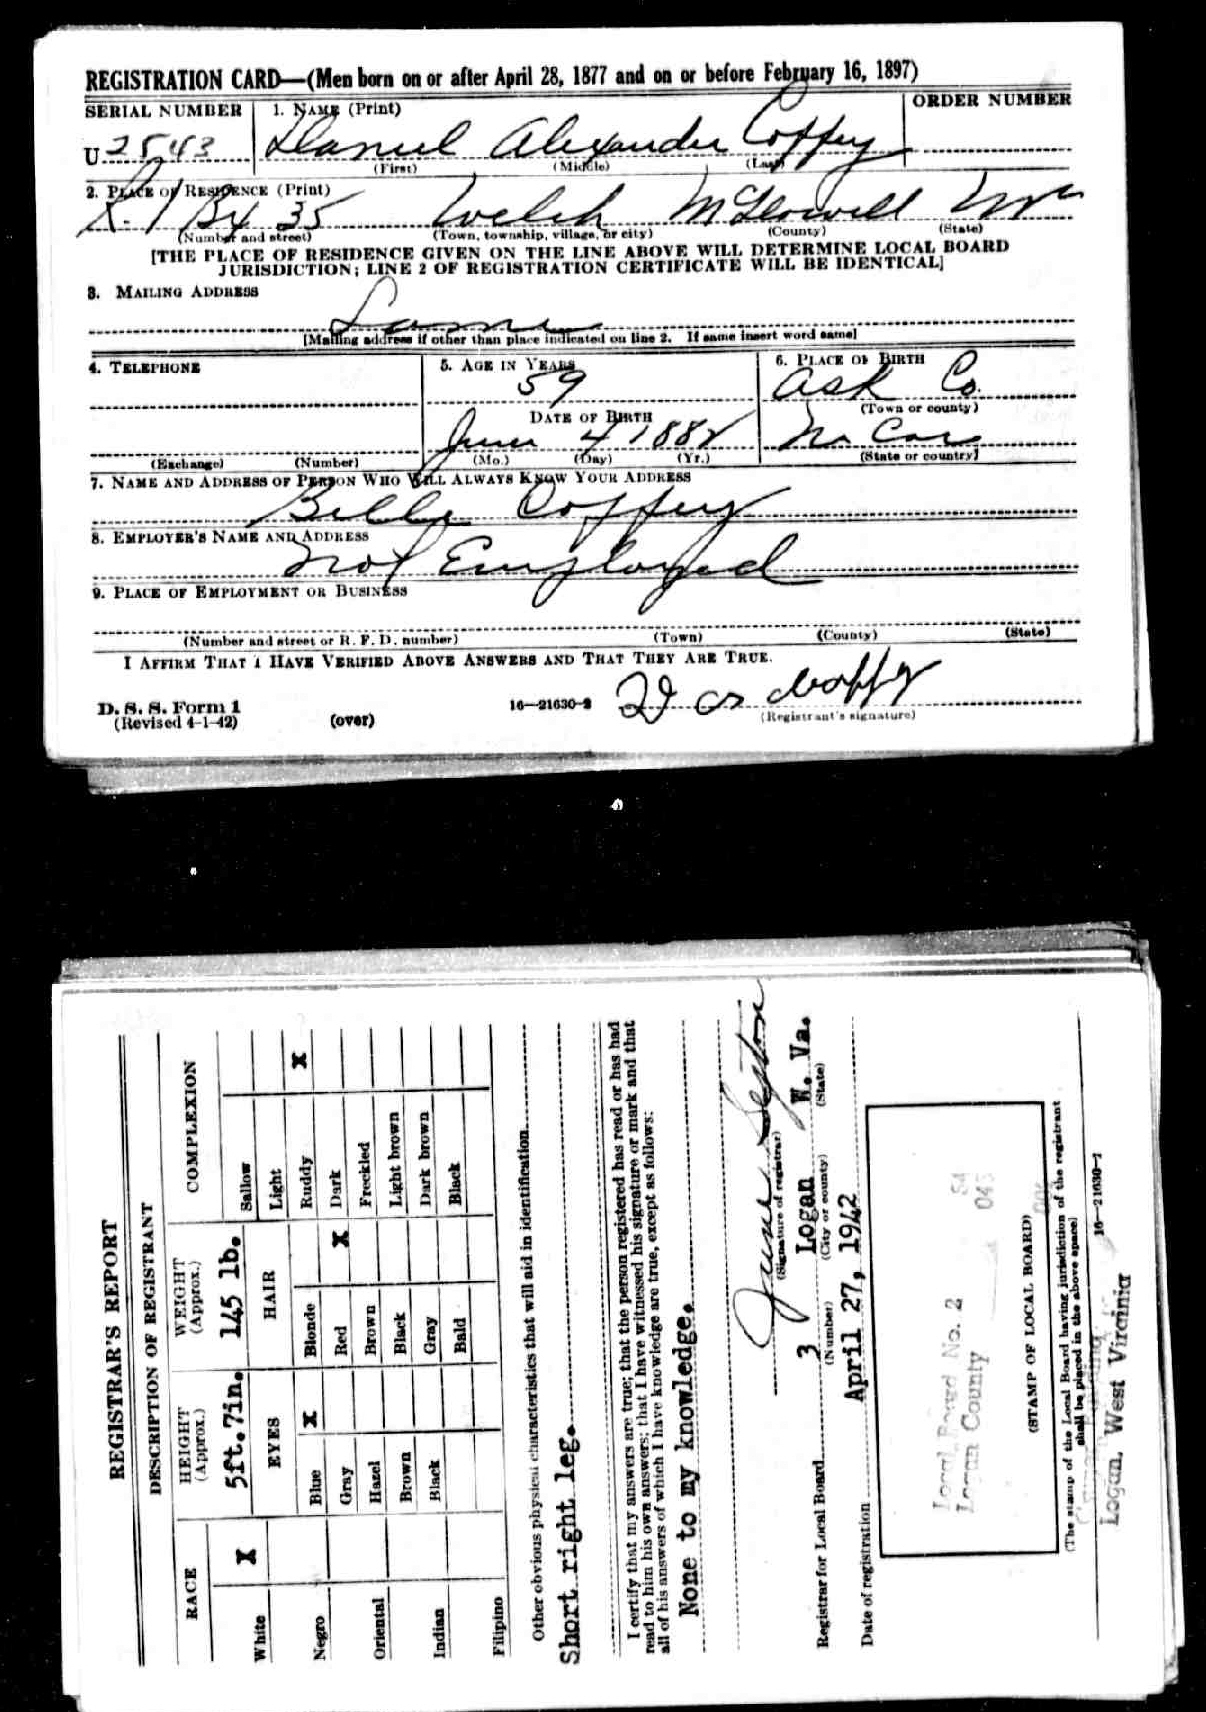 REGISTRATION CARD—(Men born on or after April 28, 1877 and on or before February 16, 1897)
SERIAL NUMBER 1. NAME (Print) ORDER NUMBER
U 2543 Daniel Alexander Coffey
(First) (Middle) (Last)
2. PLACE OF RESIDENCE (Print)
R.1 Bx 35 Welch McDowell
(Number and street) (Town, township, village, or city) (County) (State)
[THE PLACE OF RESIDENCE GIVEN ON THE LINE ABOVE WILL DETERMINE LOCAL BOARD
JURISDICTION; LINE 2 OF REGISTRATION CERTIFICATE WILL BE IDENTICAL]
3. MAILING ADDRESS
Same
[Mailing address if other than place indicated on line 2. If same insert word same]
4. TELEPHONE 5. AGE IN YEARS 6. PLACE OF BIRTH
59 Ash Co.
(Town or county)
DATE OF BIRTH
June 4 1882 N. Car
(Exchange) (Number) (Mo.) (Day) (Yr.) (State or country)
7. NAME AND ADDRESS OF PERSON WHO WILL ALWAYS KNOW YOUR ADDRESS
Coffey
8. EMPLOYER'S NAME AND ADDRESS
Not Employed
9. PLACE OF EMPLOYMENT OR BUSINESS
(Number and street or R. F. D. number) (Town) (County) (State)
I AFFIRM THAT I HAVE VERIFIED ABOVE ANSWERS AND THAT THEY ARE TRUE.
D. S. S. Form 1
(Revised 4-1-42) (over) 16—21630-2 (Registrant's signature)
REGISTRAR'S REPORT
DESCRIPTION OF REGISTRANT
RACE HEIGHT (Approx.) WEIGHT (Approx.) COMPLEXION
5ft. 7in. 145 lb.
White X EYES HAIR Sallow
Light
Negro Blue X Blonde Ruddy X
Gray Red X Dark
Oriental Hazel Brown Freckled
Brown Black Light brown
Indian Black Gray Dark brown
Bald Black
Filipino
Other obvious physical characteristics that will aid in identification
Short right leg.
I certify that my answers are true; that the person registered has read or has had
read to him his own answers; that I have witnessed his signature or mark and that
all of his answers of which I have knowledge are true, except as follows:
None to my knowledge.
June
(Signature of registrar)
Registrar for Local Board 3 Logan W. Va.
(Number) (City or county) (State)
Date of registration April 27, 1942
Local Board No. 2 54
Logan County 045
Logan, West Virginia
(STAMP OF LOCAL BOARD)
(The stamp of the Local Board having jurisdiction of the registrant
shall be placed in the above space)
16—21630-1